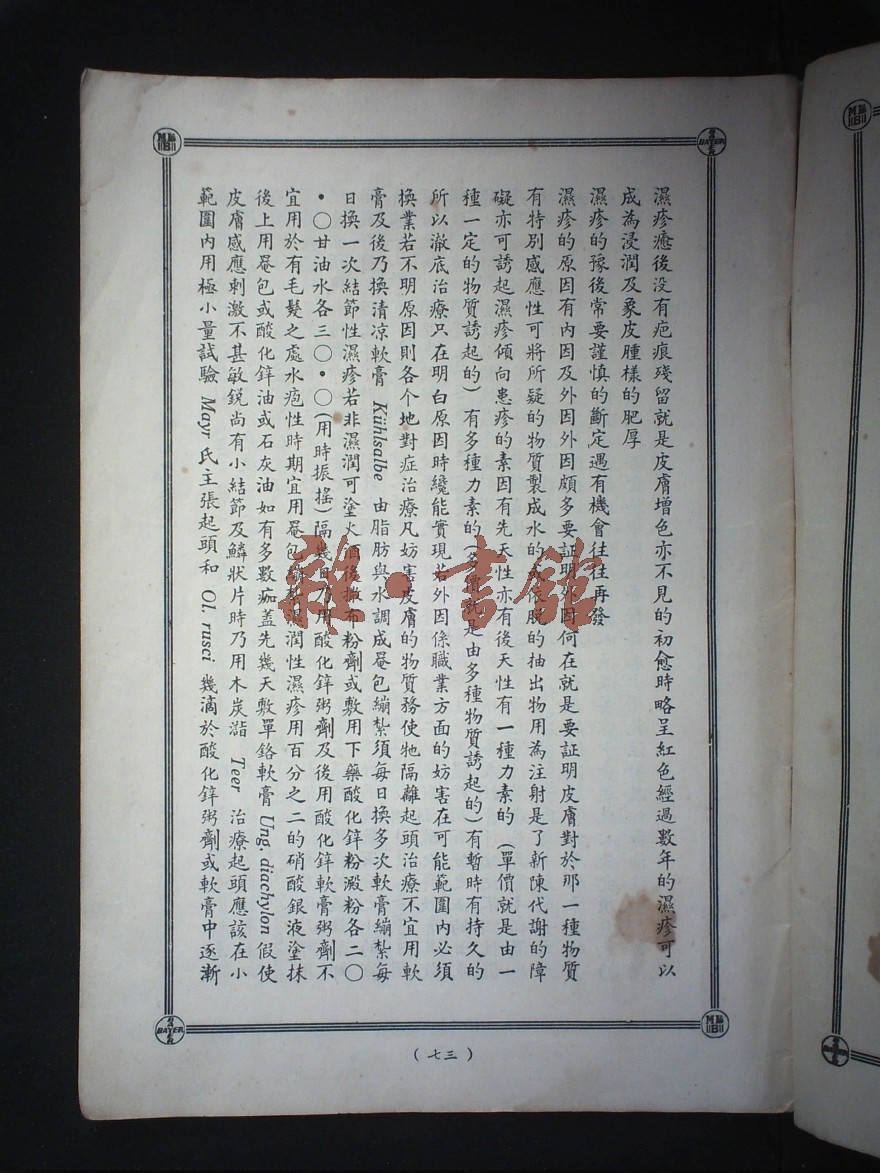 濕疹癒後没有疤痕殘留就是皮膚增色亦不見的初愈時略呈紅色經過數年的濕疹可以
成為浸潤及象皮腫樣的肥厚
濕疹的豫後常要謹慎的斷定遇有機會往往再發
濕疹的原因有内因及外因外因頗多要証明外因何在就是要証明皮膚對於那一種物質
有特別感應性可將所疑的物質製成水的或依脱的抽出物用為注射是了新陳代謝的障
礙亦可誘起濕疹傾向患疹的素因有先天性亦有後天性有一種力素的（單價就是由一
種一定的物質誘起的）有多種力素的（多價就是由多種物質誘起的）有暫時有持久的
所以澈底治療只在明白原因時纔能實現若外因係職業方面的妨害在可能範圍内必須
換業若不明原因則各个地對症治療凡妨害皮膚的物質務使牠隔離起頭治療不宜用軟
膏及後乃換清凉軟膏 Kühlsalbe 由脂肪與水調成罨包繃紮須每日換多次軟膏繃紮每
日換一次結節性濕疹若非濕潤可塗火酒後撒布粉劑或敷用下藥酸化鋅粉澱粉各二〇
•〇甘油水各三〇•〇(用時振搖)隔幾日乃用酸化鋅粥劑及後用酸化鋅軟膏粥劑不
宜用於有毛髮之處水疱性時期宜用罨包繃紮濕潤性濕疹用百分之二的硝酸銀液塗抹
後上用罨包或酸化鋅油或石灰油如有多數痂蓋先幾天敷單鉻軟膏 Ung. diachylon 假使
皮膚感應刺激不甚敏銳尚有小結節及鱗狀片時乃用木炭㴞 Teer 治療起頭應該在小
範圍内用極小量試驗 Mayr 氏主張起頭和 Ol. rusci 幾滴於酸化鋅粥劑或軟膏中逐漸
(七三)
雜•書館
BAYER
BAYER